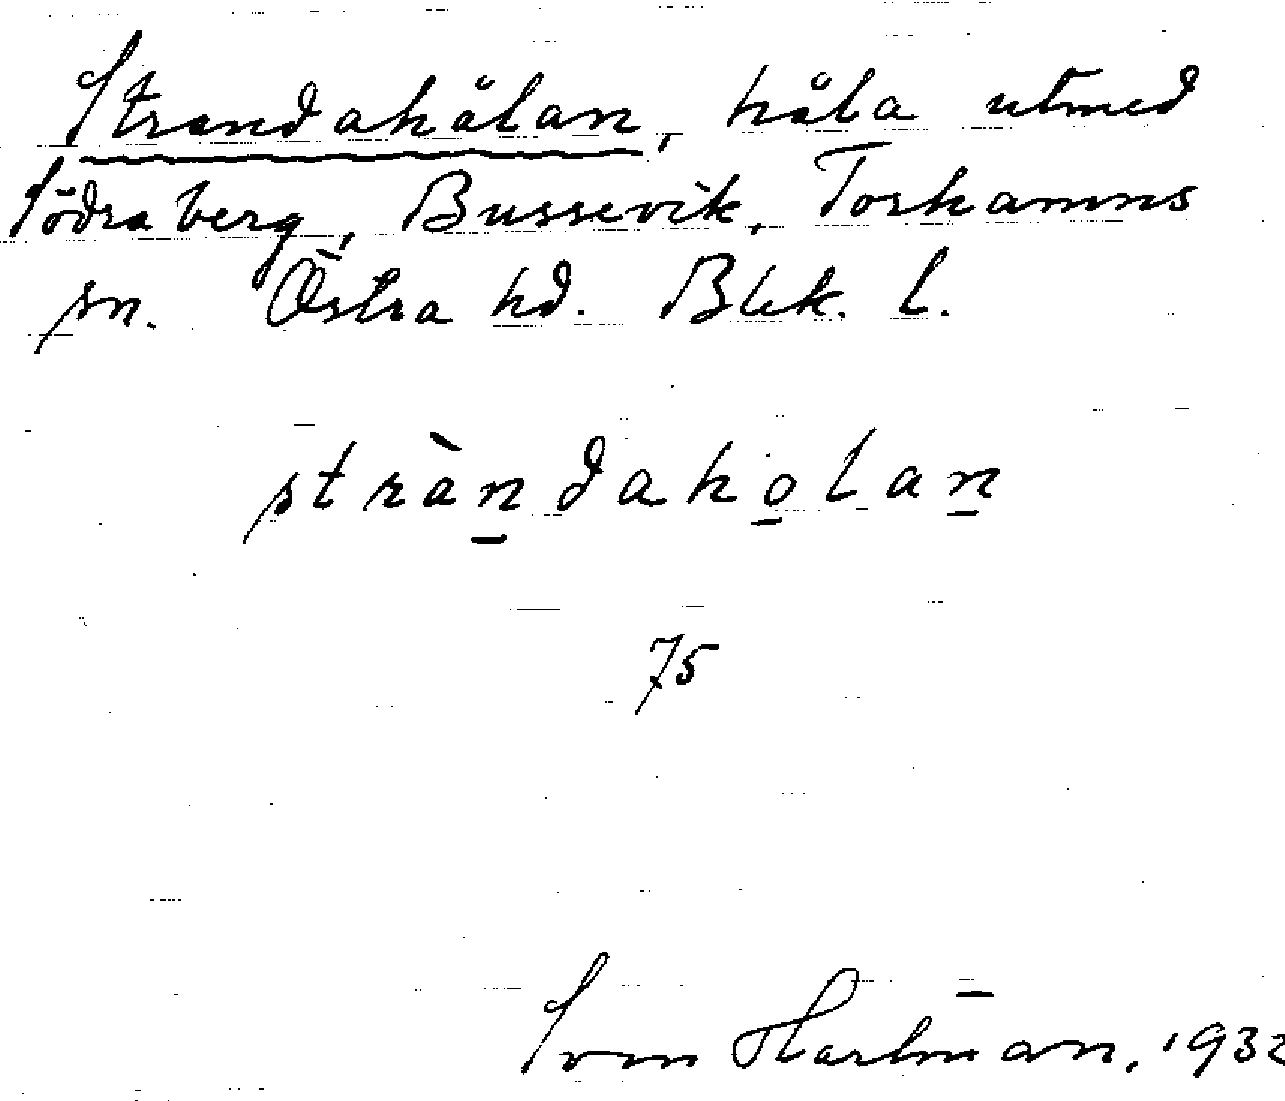 Strandahålan, håla utmed
Södra berg, Bussevik, Torhamns
sn. Östra hd. Blek. l.
stràn̲daho̲lan̲
75
Sven Hartman, 1932